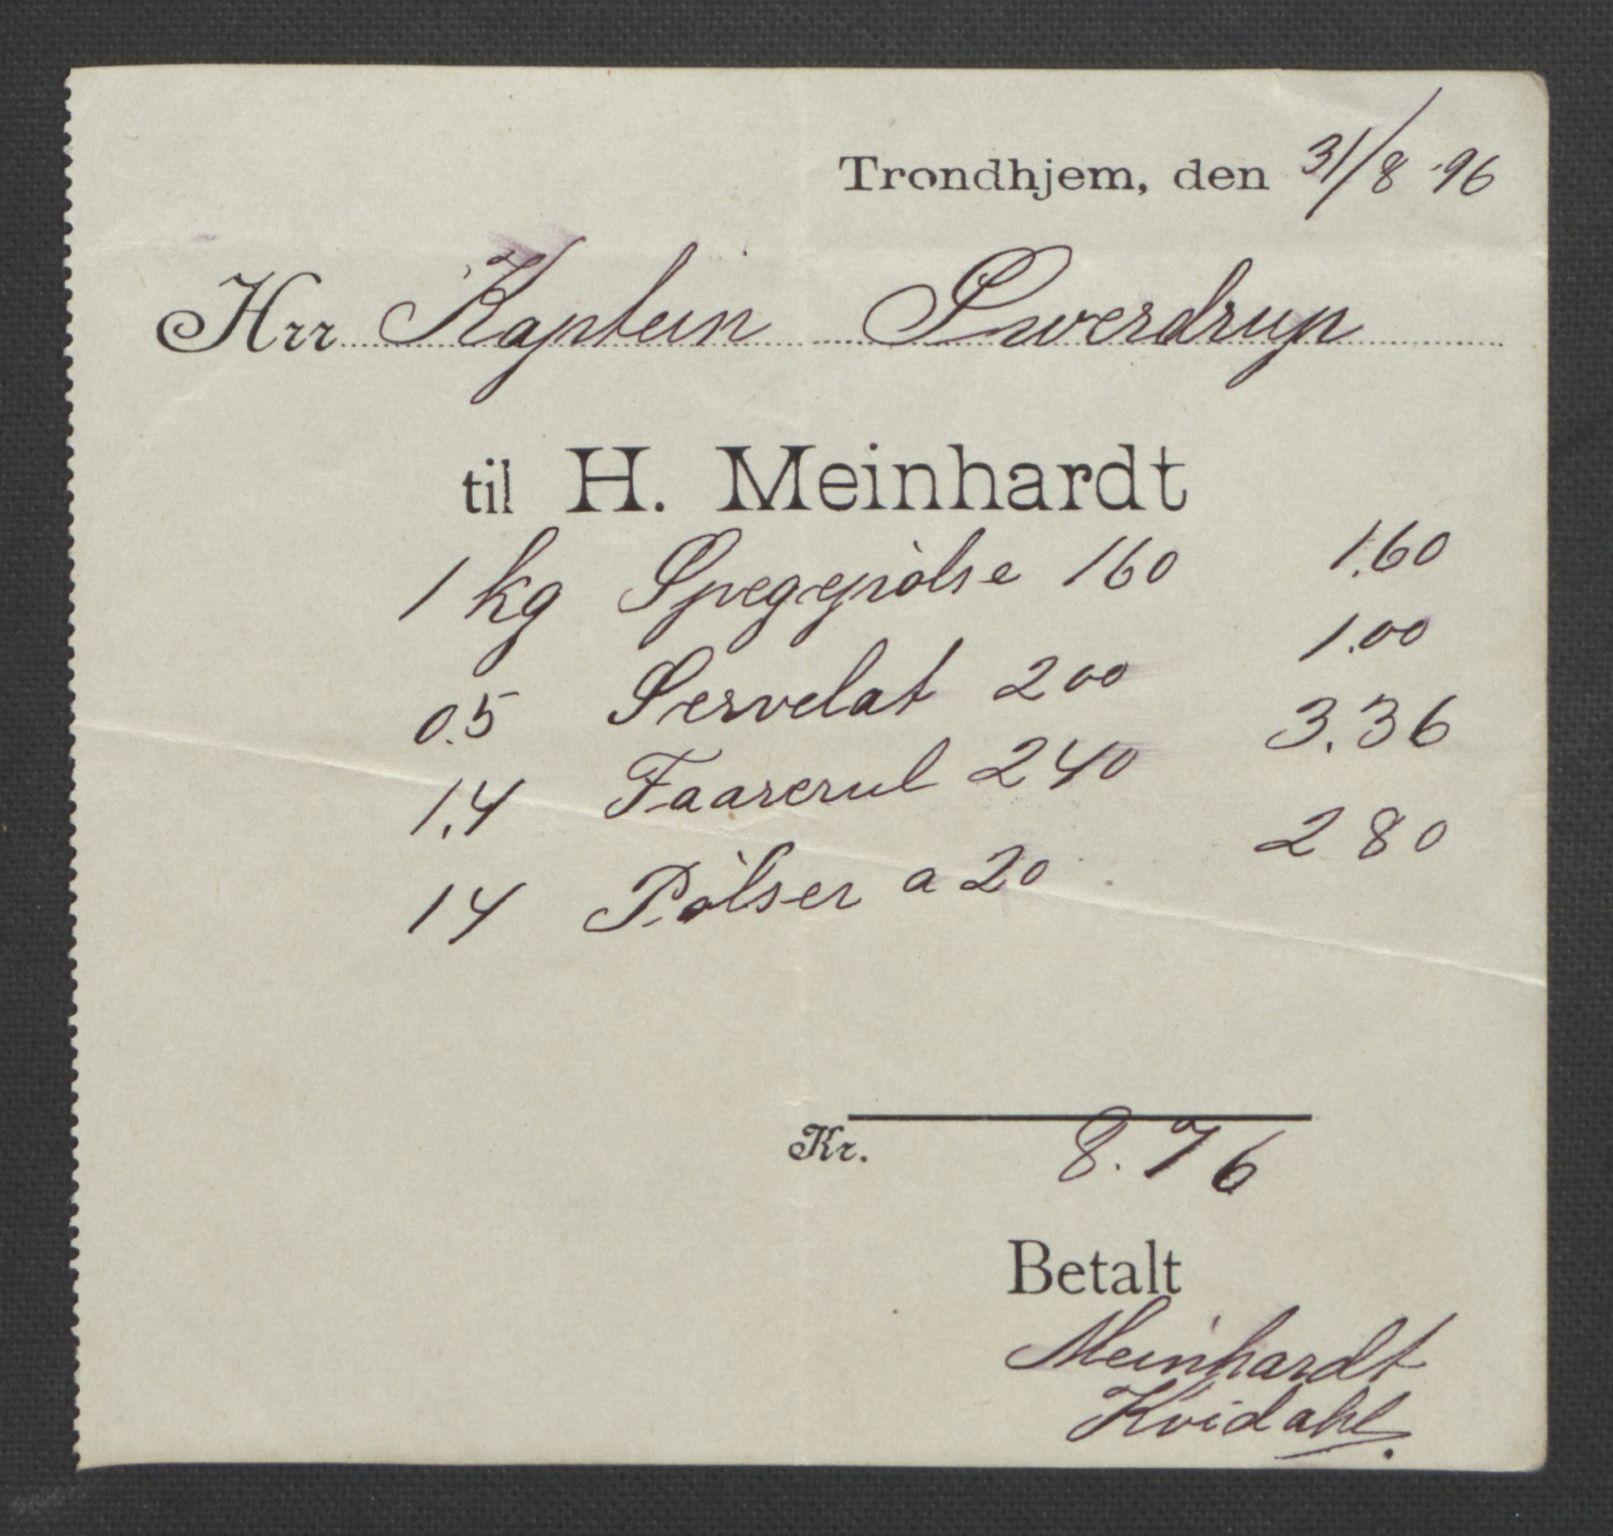 Trondhjem, den 31/8 96
Hrr Kaptein Swerdrup
til H. Meinhardt
1 kg Spegepølse 160 1.60
0.5 Servelat 200 1.00
1.4 Faarerul 240 3.36
14 Pølser a 20 2 80
Kr. 8.76
Betalt
Meinhardt
Kvidahl.